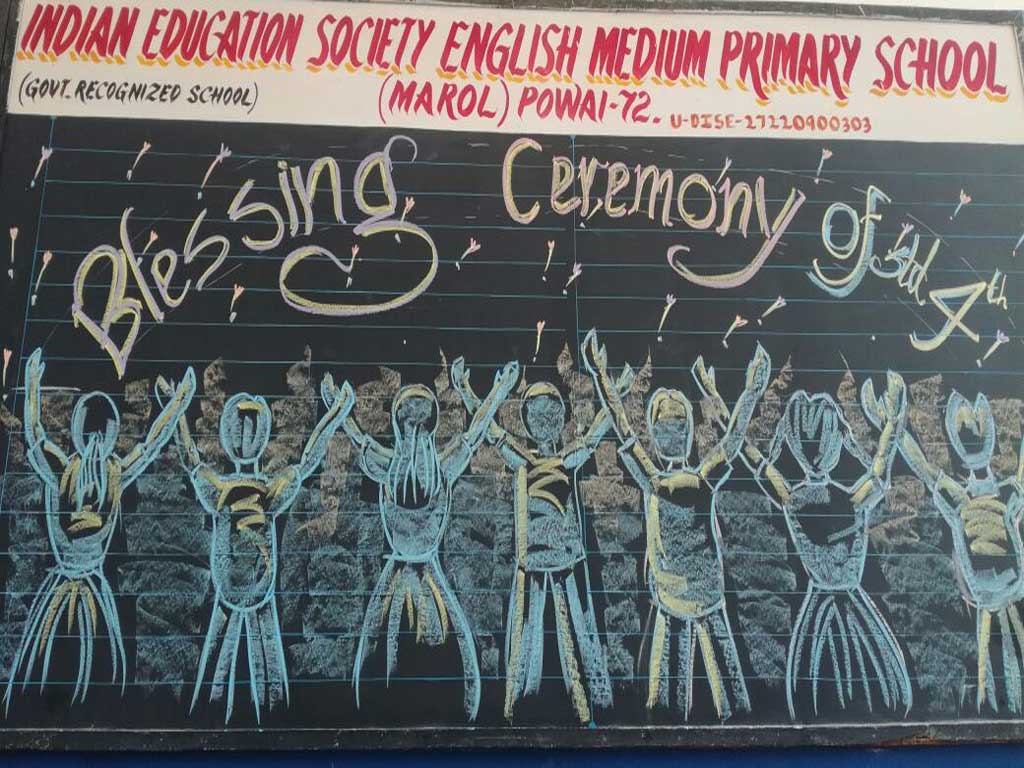 INDIAN EDUCATION SOCIETY ENGLISH MEDIUM PRIMARY SCHOOL
(GOVT. RECOGNIZED SCHOOL) (MAROL) POWAI-72. U-DISE-27220900303
Blessing Ceremony of Std 4th